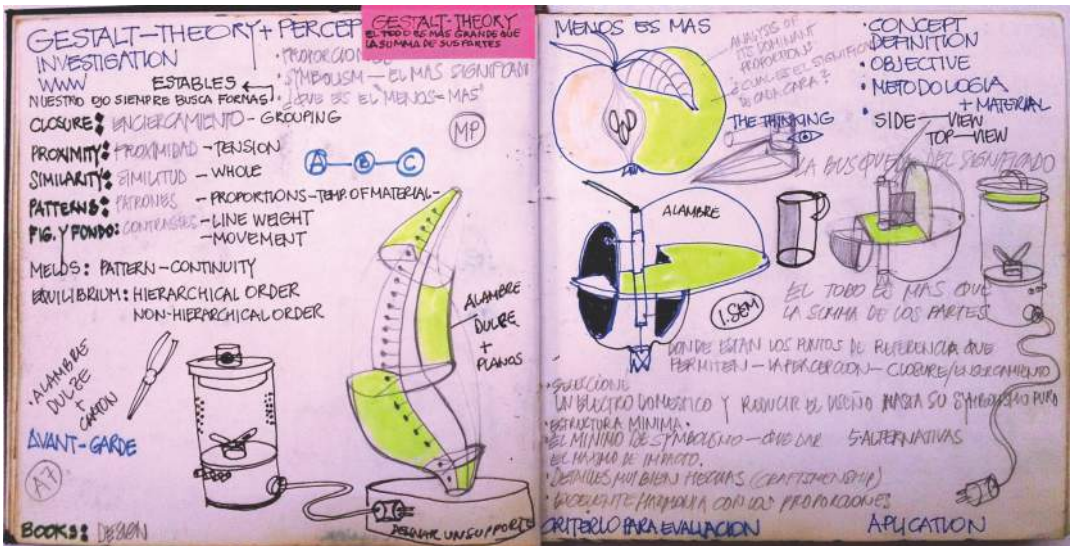 GESTALT-THEORY + PERCEP
INVESTIGATION
WWW
GESTALT-THEORY
EL TODO ES MAS GRANDE QUE
LA SUMA DE SUS PARTES
PROPORCION
SYMBOLISM - EL MAS SIGNIFICADO
ESTABLES
NUESTRO OJO SIEMPRE BUSCA FORMAS
¿QUE ES EL "MENOS=MAS"
CLOSURE: ENCIERCAMIENTO - GROUPING
MP
PROXIMITY: PROXIMIDAD - TENSION
A B C
SIMILARITY: SIMILITUD - WHOLE
PATTERNS: PATRONES - PROPORTIONS - TEMP. OF MATERIAL -
FIG. Y FONDO: CONTRASTES - LINE WEIGHT
- MOVEMENT
MELOS: PATTERN - CONTINUITY
EQUILIBRIUM: HIERARCHICAL ORDER
NON-HIERARCHICAL ORDER
ALAMBRE
DULZE
+
PLANOS
• ALAMBRE
DULZE
+
CARTON
AVANT-GARDE
A7
BOOKS: DESIGN
DISEÑAR UN SUPPORTE
MENOS ES MAS
ANALYSIS OF
ITS DOMINANT
PROPORTIONS
¿CUAL ES EL SIGNIFICADO
DE CADA CARA?
THE THINKING
• CONCEPT
DEFINITION
• OBJECTIVE
• METODOLOGIA
+ MATERIAL
SIDE - VIEW
TOP - VIEW
LA BUSQUEDA DEL SIGNIFICADO
ALAMBRE
1. SEM
EL TODO ES MAS QUE
LA SUMMA DE LOS PARTES
DONDE ESTAN LOS PUNTOS DE REFERENCIA QUE
PERMITEN - LA PERCEPCION - CLOSURE/ENCERCAMIENTO
• SELECCIONE
UN ELECTRO DOMESTICO Y REDUCIR EL DISEÑO HASTA SU SYMBOLISMO PURO
• ESTRUCTURA MINIMA.
• EL MINIMO DE SYMBOLISMO - QUE DAR 5-ALTERNATIVAS
EL MAXIMO DE IMPACTO.
• DETALLES MUY BIEN HECHAS (CRAFTSMENSHIP)
• EXCELENTE HARMONIA CON LOS PROPORCIONES
CRITERIO PARA EVALUACION APLICATION